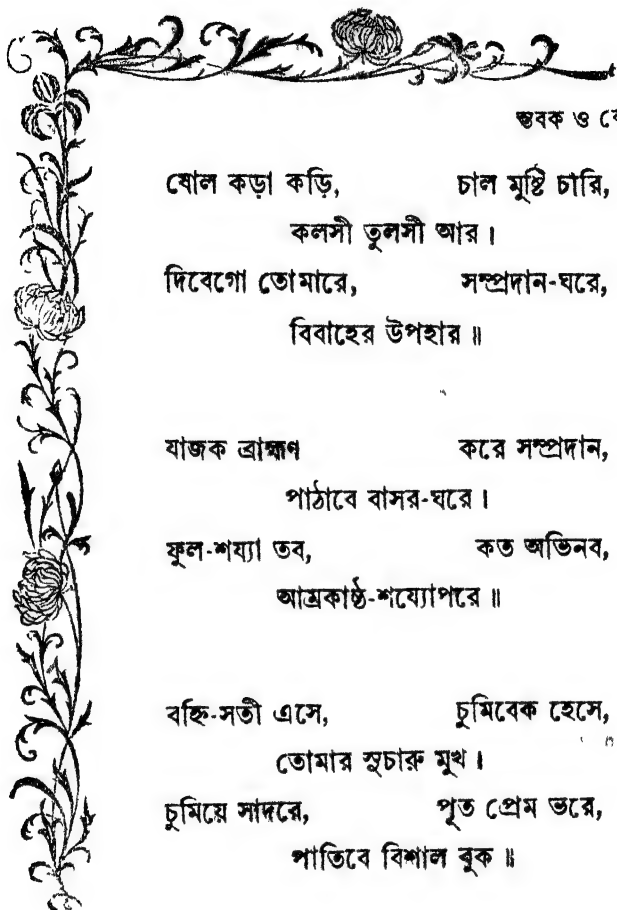 স্তবক ও
ষোল কড়া কড়ি, চাল মুষ্টি চারি,
কলসী তুলসী আর ।
দিবেগো তোমারে, সম্প্রদান-ঘরে,
বিবাহের উপহার ॥
যাজক ব্রাহ্মণ করে সম্প্রদান,
পাঠাবে বাসর-ঘরে ।
ফুল-শয্যা তব, কত অভিনব,
আম্রকাষ্ঠ-শয্যোপরে ॥
বহ্নি-সতী এসে, চুমিবেক হেসে,
তোমার সুচারু মুখ ।
চুমিয়ে সাদরে, পূত প্রেম ভরে,
পাতিবে বিশাল বুক ॥